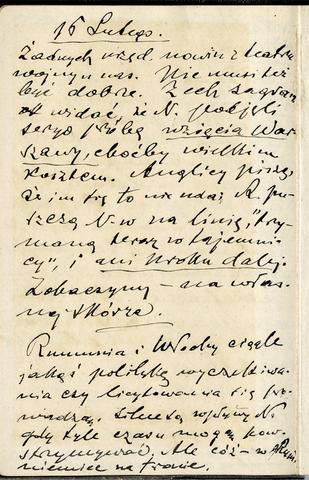 16 Lutego.
Żadnych urzęd. nowin z teatru
wojny u nas. Nie musi też
być dobrze. Z ech zagran.
widać, że N. podjęli
seryo próbę wzięcia War-
szawy, choćby wielkim
kosztem. Anglicy piszą,
że im się to nie uda, R. pu-
szczą N-w na linię, "trzy-
maną teraz w tajemni-
cy", i ani kroku dalej.
Zobaczymy – na włas-
nej skórze.
Rumunia i Włochy ciągle
jakąś politykę wyczekiwa-
nia czy licytowania się pro-
wadzą. wpływy N.
gdy tyle czasu mogą pow-
strzymywać. Ale cóż – w Rum.
niemiec na tronie.